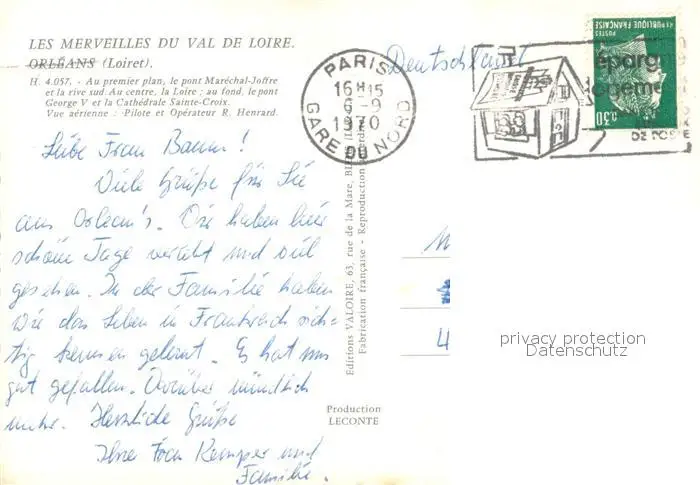 LES MERVEILLES DU VAL DE LOIRE.
ORLÉANS (Loiret).
H. 4.057. - Au premier plan, le pont Maréchal-Joffre
et la rive sud. Au centre, la Loire ; au fond, le pont
George V et la Cathédrale Sainte-Croix.
Vue aérienne : Pilote et Opérateur R. Henrard.
Liebe Frau Baum!
Viele Grüße für Sie
aus Orlean's. Wir haben hier
schöne Tage verlebt und viel
gesehen. In der Familie haben
wir das Leben in Frankreich rich-
tig kennen gelernt. Es hat uns
gut gefallen. Darüber mündlich
mehr. Herzliche Grüße
Ihre Frau Kemper und
Familie.
Editions VALOIRE, 63, rue de la Mare,
Fabrication française - Reproduction
Production
LECONTE
PARIS
16H15
6-9
1970
GARE DU NORD
Deutschland
POSTES
REPUBLIQUE FRANÇAISE
0,30
épargne
logeme
DE POSTE
privacy protection
Datenschutz